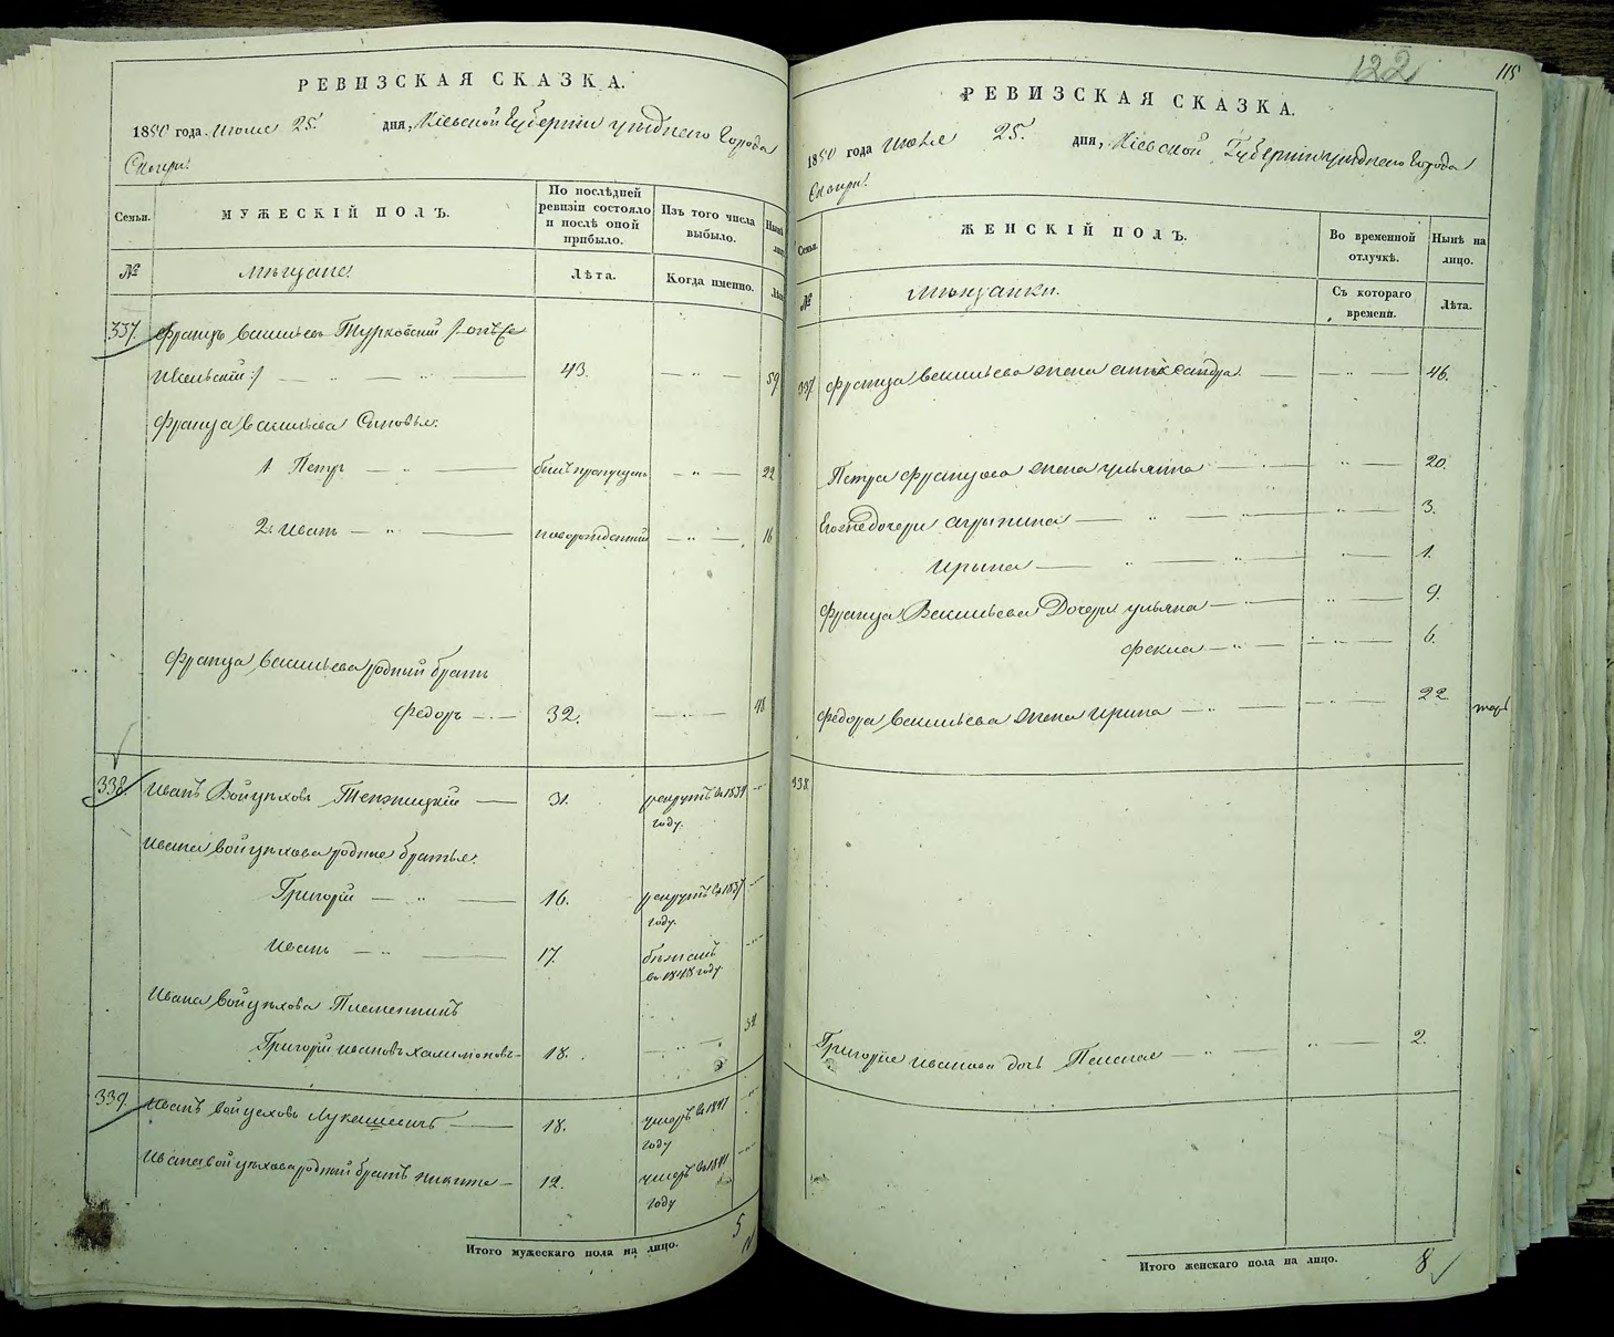 РЕВИЗСКАЯ СКАЗКА.
1850 года Июля 25. дня, Кіевской Губерніи уѣзднаго Города
Сквири!
Семьи. МУЖЕСКІЙ ПОЛЪ. По послѣдней ревизіи состояло и послѣ оной прибыло. Изъ того числа выбыло. Нынѣ лицо
№ мѣщане Лѣта. Когда именно. Лѣта
337. Францъ Васильевъ Турковскій / онъ же
43. — „ — 59
Франца Васильева Сыновья:
1. Петръ — „ — былъ пропущенъ — „ — 22
2. Иванъ — „ — новорожденный — „ — 16
Франца Васильева родный братъ
Федоръ — „ — 32. — „ — 48
338. Иванъ Войцѣховъ — 31. рекрутъ въ 1834
году.
Ивана Войцѣхова родные братья:
Григорій — „ — 16. рекрутъ въ 1837
году.
Иванъ — „ — 17. бѣжалъ
въ 1848 году
Ивана Войцѣхова Племенникъ
Григорій Ивановъ 18. — „ — 34
339. Иванъ Войцеховъ Лукашевичъ — 18. умеръ въ 1841
году
Ивана Войцѣхова родный братъ Никита — 12. умеръ въ 1841
году
Итого мужескаго пола на лицо. 5
122
115
РЕВИЗСКАЯ СКАЗКА.
1850 года Июля 25. дня, Кіевской Губерніи уѣзднаго Города
Сквири!
Семьи. ЖЕНСКІЙ ПОЛЪ. Во временной отлучкѣ. Нынѣ на лицо.
№ Мѣщанки. Съ котораго времени. Лѣта.
337. Франца Васильева жена Александра — „ — 46.
Петра Францова жена Ульяна — „ — 20.
Его же дочери Агрыпина — „ — 3.
Ирына — „ — 1.
Франца Васильева Дочери Ульяна — „ — 9.
Фекла — „ — 6.
Федора Васильева жена Ирина — „ — 22.
338
Григорія Иванова дочь — „ — 2.
Итого женскаго пола на лицо. 8